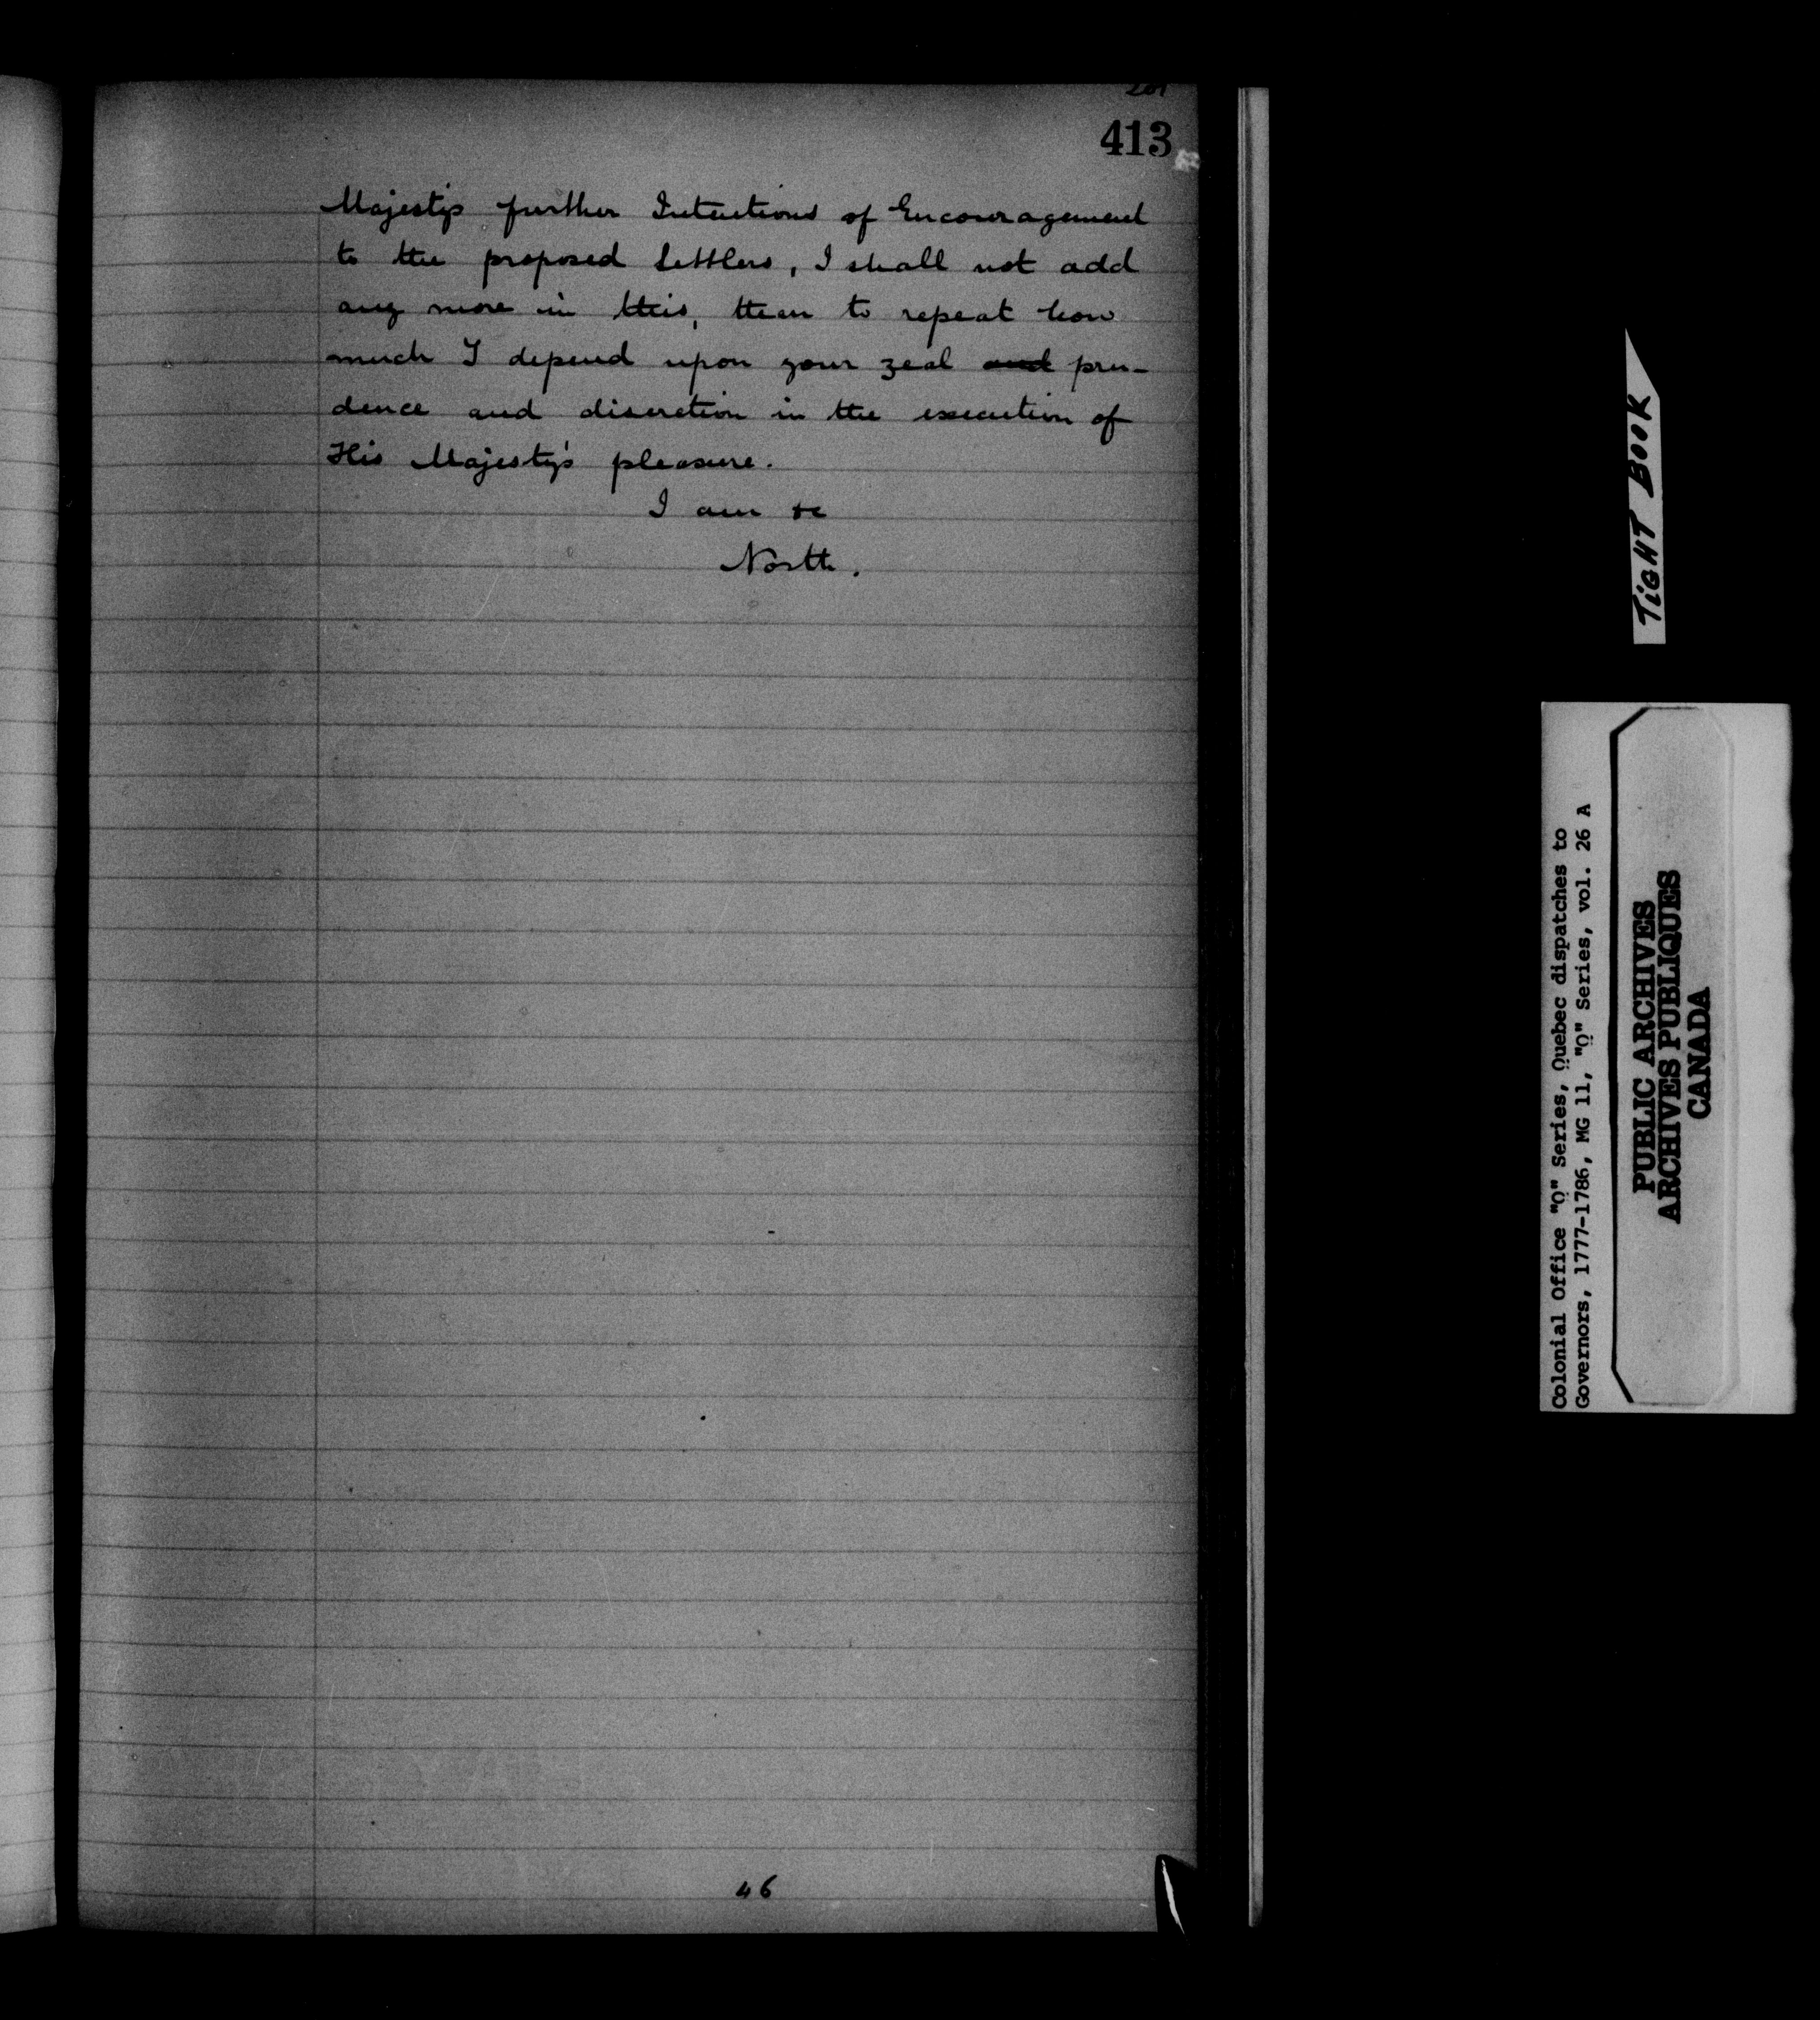 413
Majesty's further Intentions of Encouragement
to the proposed Settlers, I shall not add
any more in this, than to repeat how
much I depend upon your zeal and pru-
dence and discretion in the execution of
His Majesty's pleasure.
I am &c
North.
46
TIGHT BOOK
Colonial Office "Q" Series, Quebec dispatches to
Governors, 1777-1786, MG 11, "Q" Series, vol. 26 A
PUBLIC ARCHIVES
ARCHIVES PUBLIQUES
CANADA